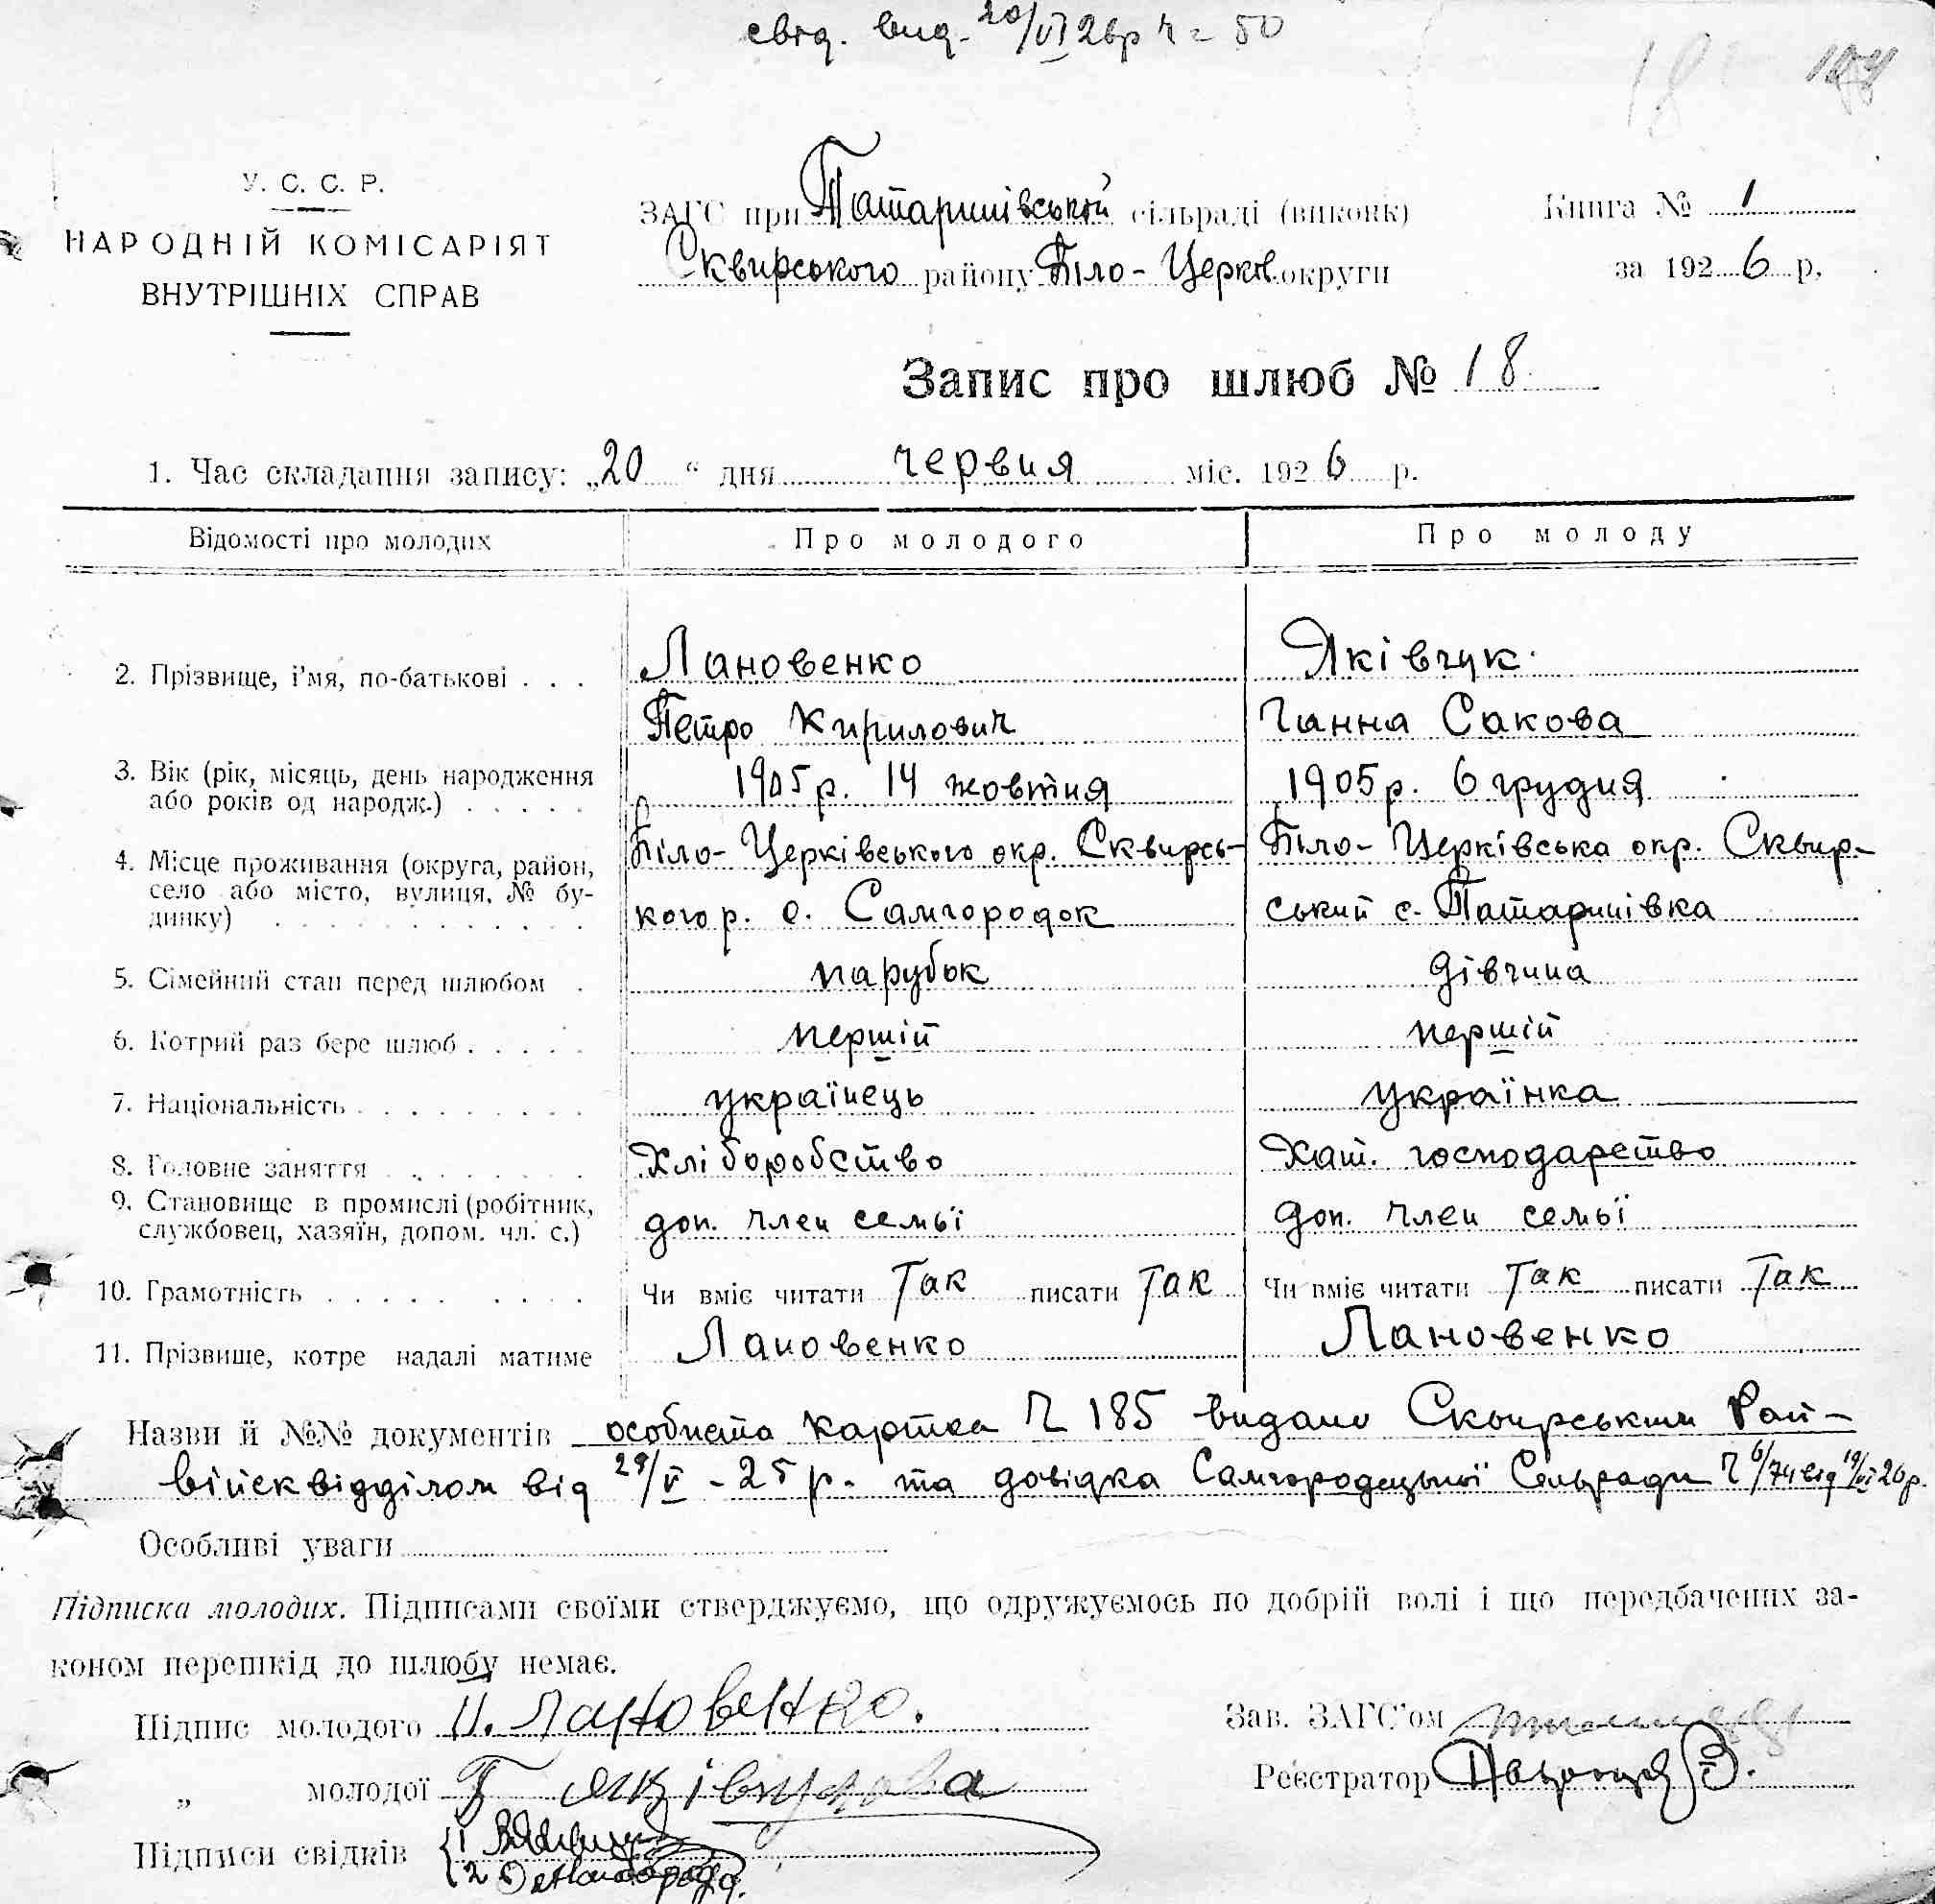 свід. вид. 20/VI 26р Ч = 50
18
У. С. С. Р.
НАРОДНІЙ КОМІСАРІЯТ
ВНУТРІШНІХ СПРАВ
ЗАГС при Татаринівській сільраді (виконк)
Сквирського району Біло-Церків. округи
Книга № 1
за 1926 р.
Запис про шлюб № 18
1. Час складання запису: „20“ дня червня міс. 1926 р.
Відомості про молодих Про молодого Про молоду
2. Прізвище, і'мя, по-батькові . . . Лановенко Яківчук
Петро Кирилович Ганна Сакова
3. Вік (рік, місяць, день народження 1905 р. 14 жовтня 1905 р. 6 грудня
або років од народж.) . . . . .
4. Місце проживання (округа, район, Біло-Церківського окр. Сквирсь- Біло-Церківська окр. Сквир-
село або місто, вулиця, № бу- кого р. с. Самгородок ський с. Татаринівка
динку)
5. Сімейний стан перед шлюбом . парубок дівчина
6. Котрий раз бере шлюб . . . . . першій першій
7. Національність . . . . . . . . українець українка
8. Головне заняття . . . . . . . Хліборобство Хат. господарство
9. Становище в промислі (робітник, доп. член семьї доп. член семьї
службовец, хазяїн, допом. чл. с.)
10. Грамотність . . . . . . . . . Чи вміє читати Так писати Так Чи вміє читати Так писати Так
11. Прізвище, котре надалі матиме Лановенко Лановенко
Назви й №№ документів особиста картка Ч 185 видано Сквирським Рай-
війсквідділом від 29/V - 25 р. та довідка Самгородецької Сільради Ч 6/74 від 19/VI 26 р.
Особливі уваги
Підписка молодих. Підписами своїми стверджуємо, що одружуємось по добрій волі і що передбачених за-
коном перешкід до шлюбу немає.
Підпис молодого П. Лановенко.
Зав. ЗАГС'ом
„ молодої Г Яківчукова
Реєстратор
Підписи свідків { 1
2